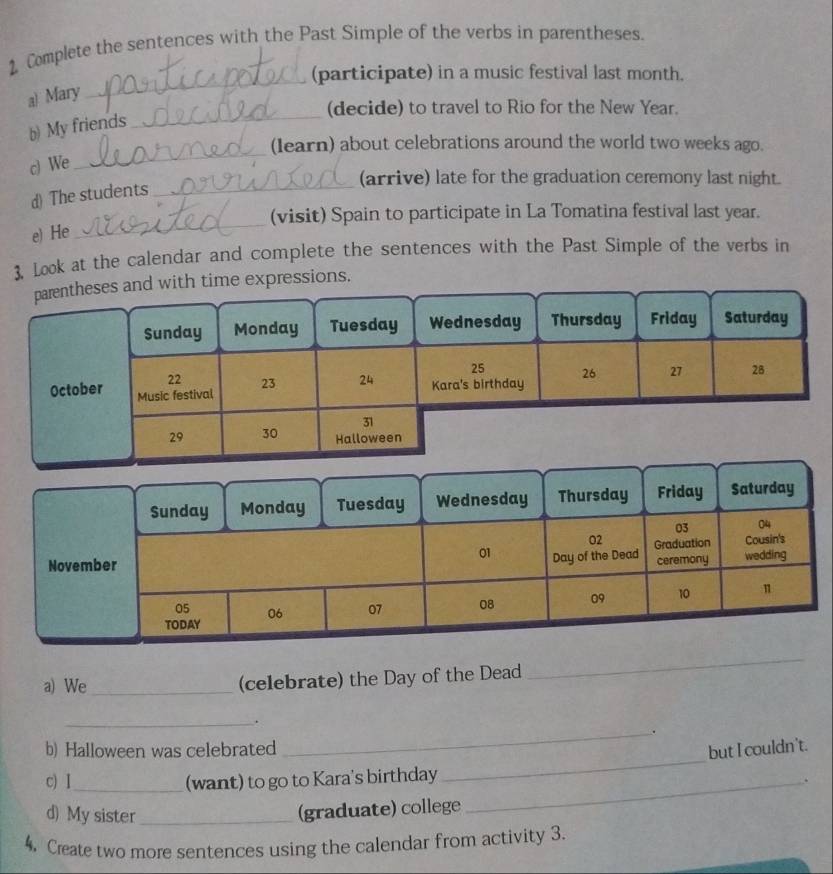 2. Complete the sentences with the Past Simple of the verbs in parentheses.
a) Mary participated (participate) in a music festival last month.
b) My friends decided (decide) to travel to Rio for the New Year.
c) We learned (learn) about celebrations around the world two weeks ago.
d) The students arrived (arrive) late for the graduation ceremony last night.
e) He visited (visit) Spain to participate in La Tomatina festival last year.
3. Look at the calendar and complete the sentences with the Past Simple of the verbs in
parentheses and with time expressions.
Sunday Monday Tuesday Wednesday Thursday Friday Saturday
October
22 23 24 25 26 27 28
Music festival Kara's birthday
29 30 31
Halloween
Sunday Monday Tuesday Wednesday Thursday Friday Saturday
November
01 02 03 04
Day of the Dead Graduation Cousin's
ceremony wedding
05 06 07 08 09 10 11
TODAY
a) We ______ (celebrate) the Day of the Dead ______
______.
b) Halloween was celebrated ______.
c) I ______ (want) to go to Kara's birthday ______ but I couldn't.
d) My sister ______ (graduate) college ______.
4. Create two more sentences using the calendar from activity 3.